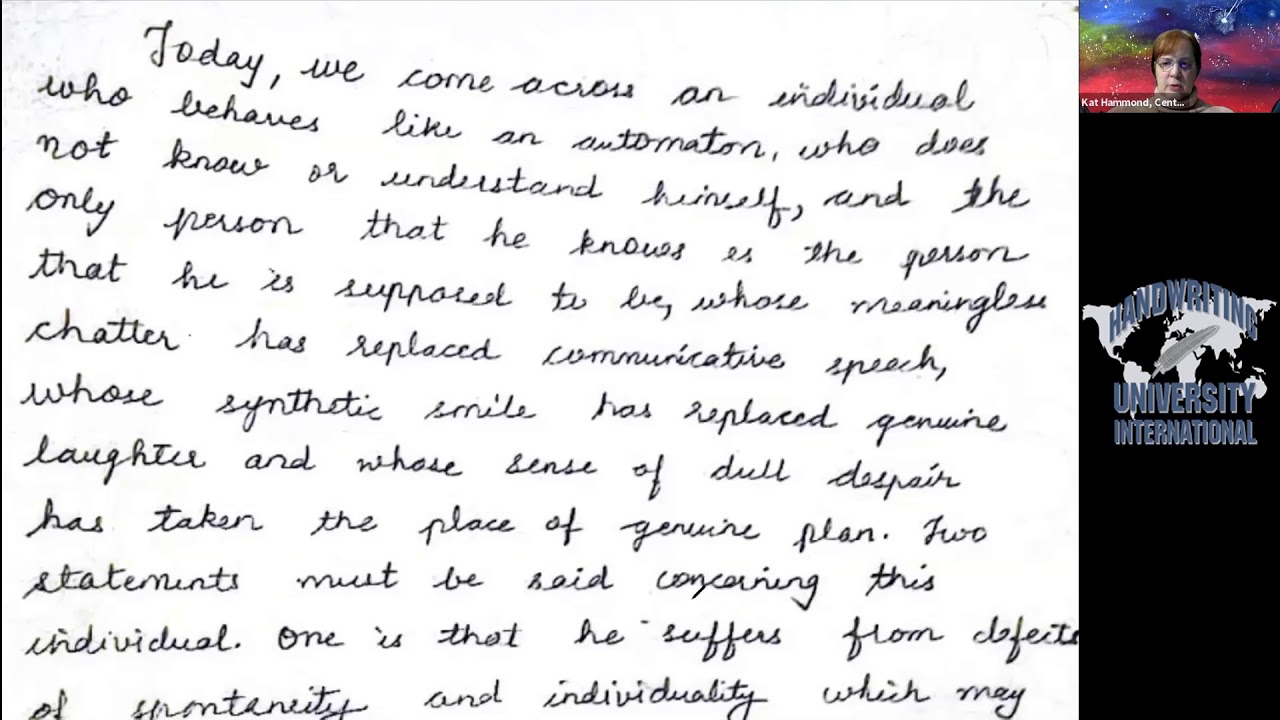 Today, we come across an individual
who behaves like an automaton, who does
not know or understand himself, and the
only person that he knows is the person
that he is supposed to be, whose meaningless
chatter has replaced communicative speech,
whose synthetic smile has replaced genuine
laughter and whose sense of dull despair
has taken the place of genuine plan. Two
statements must be said concerning this
individual. One is that he suffers from defects
of spontaneity and individuality which may
Kat Hammond, Cent...
HANDWRITING
UNIVERSITY
INTERNATIONAL